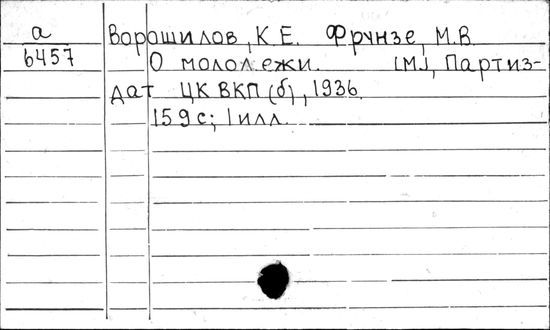 а
6457
Ворошилов, К.Е. Фрунзе, М.В.
О молодежи. [М.], Партиз-
дат ЦК ВКП(б), 1936.
159с; 1 илл.